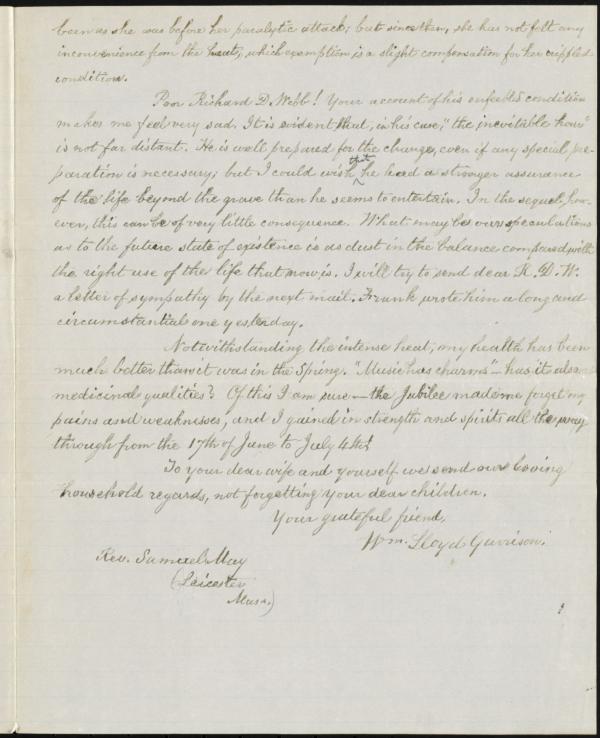 been as she was before her paralytic attack; but since then, she has not felt any
inconvenience from the heat, which exemption is a slight compensation for her crippled
condition.
Poor Richard D. Webb! Your account of his enfeebled condition
makes me feel very sad. It is evident that, in his case, "the inevitable hour"
is not far distant. He is well prepared for the change, even if any special pre-
paration is necessary; but I could wish that he had a stronger assurance
of the life beyond the grave than he seems to entertain. In the sequel, how-
ever, this can be of very little consequence. What may be our speculations
as to the future state of existence is as dust in the balance compared with
the right use of the life that now is. I will try to send dear R. D. W.
a letter of sympathy by the next mail. Frank wrote him a long and
circumstantial one yesterday.
Notwithstanding the intense heat, my health has been
much better than it was in the Spring. "Music has charms" – has it also
medicinal qualities? Of this I am sure – the Jubilee made me forget my
pains and weaknesses, and I gained in strength and spirits all the way
through from the 17th of June to July 4th!
To your dear wife and yourself we send our loving
household regards, not forgetting your dear children.
Your grateful friend,
Wm. Lloyd Garrison.
Rev. Samuel May
(Leicester
Mass.)